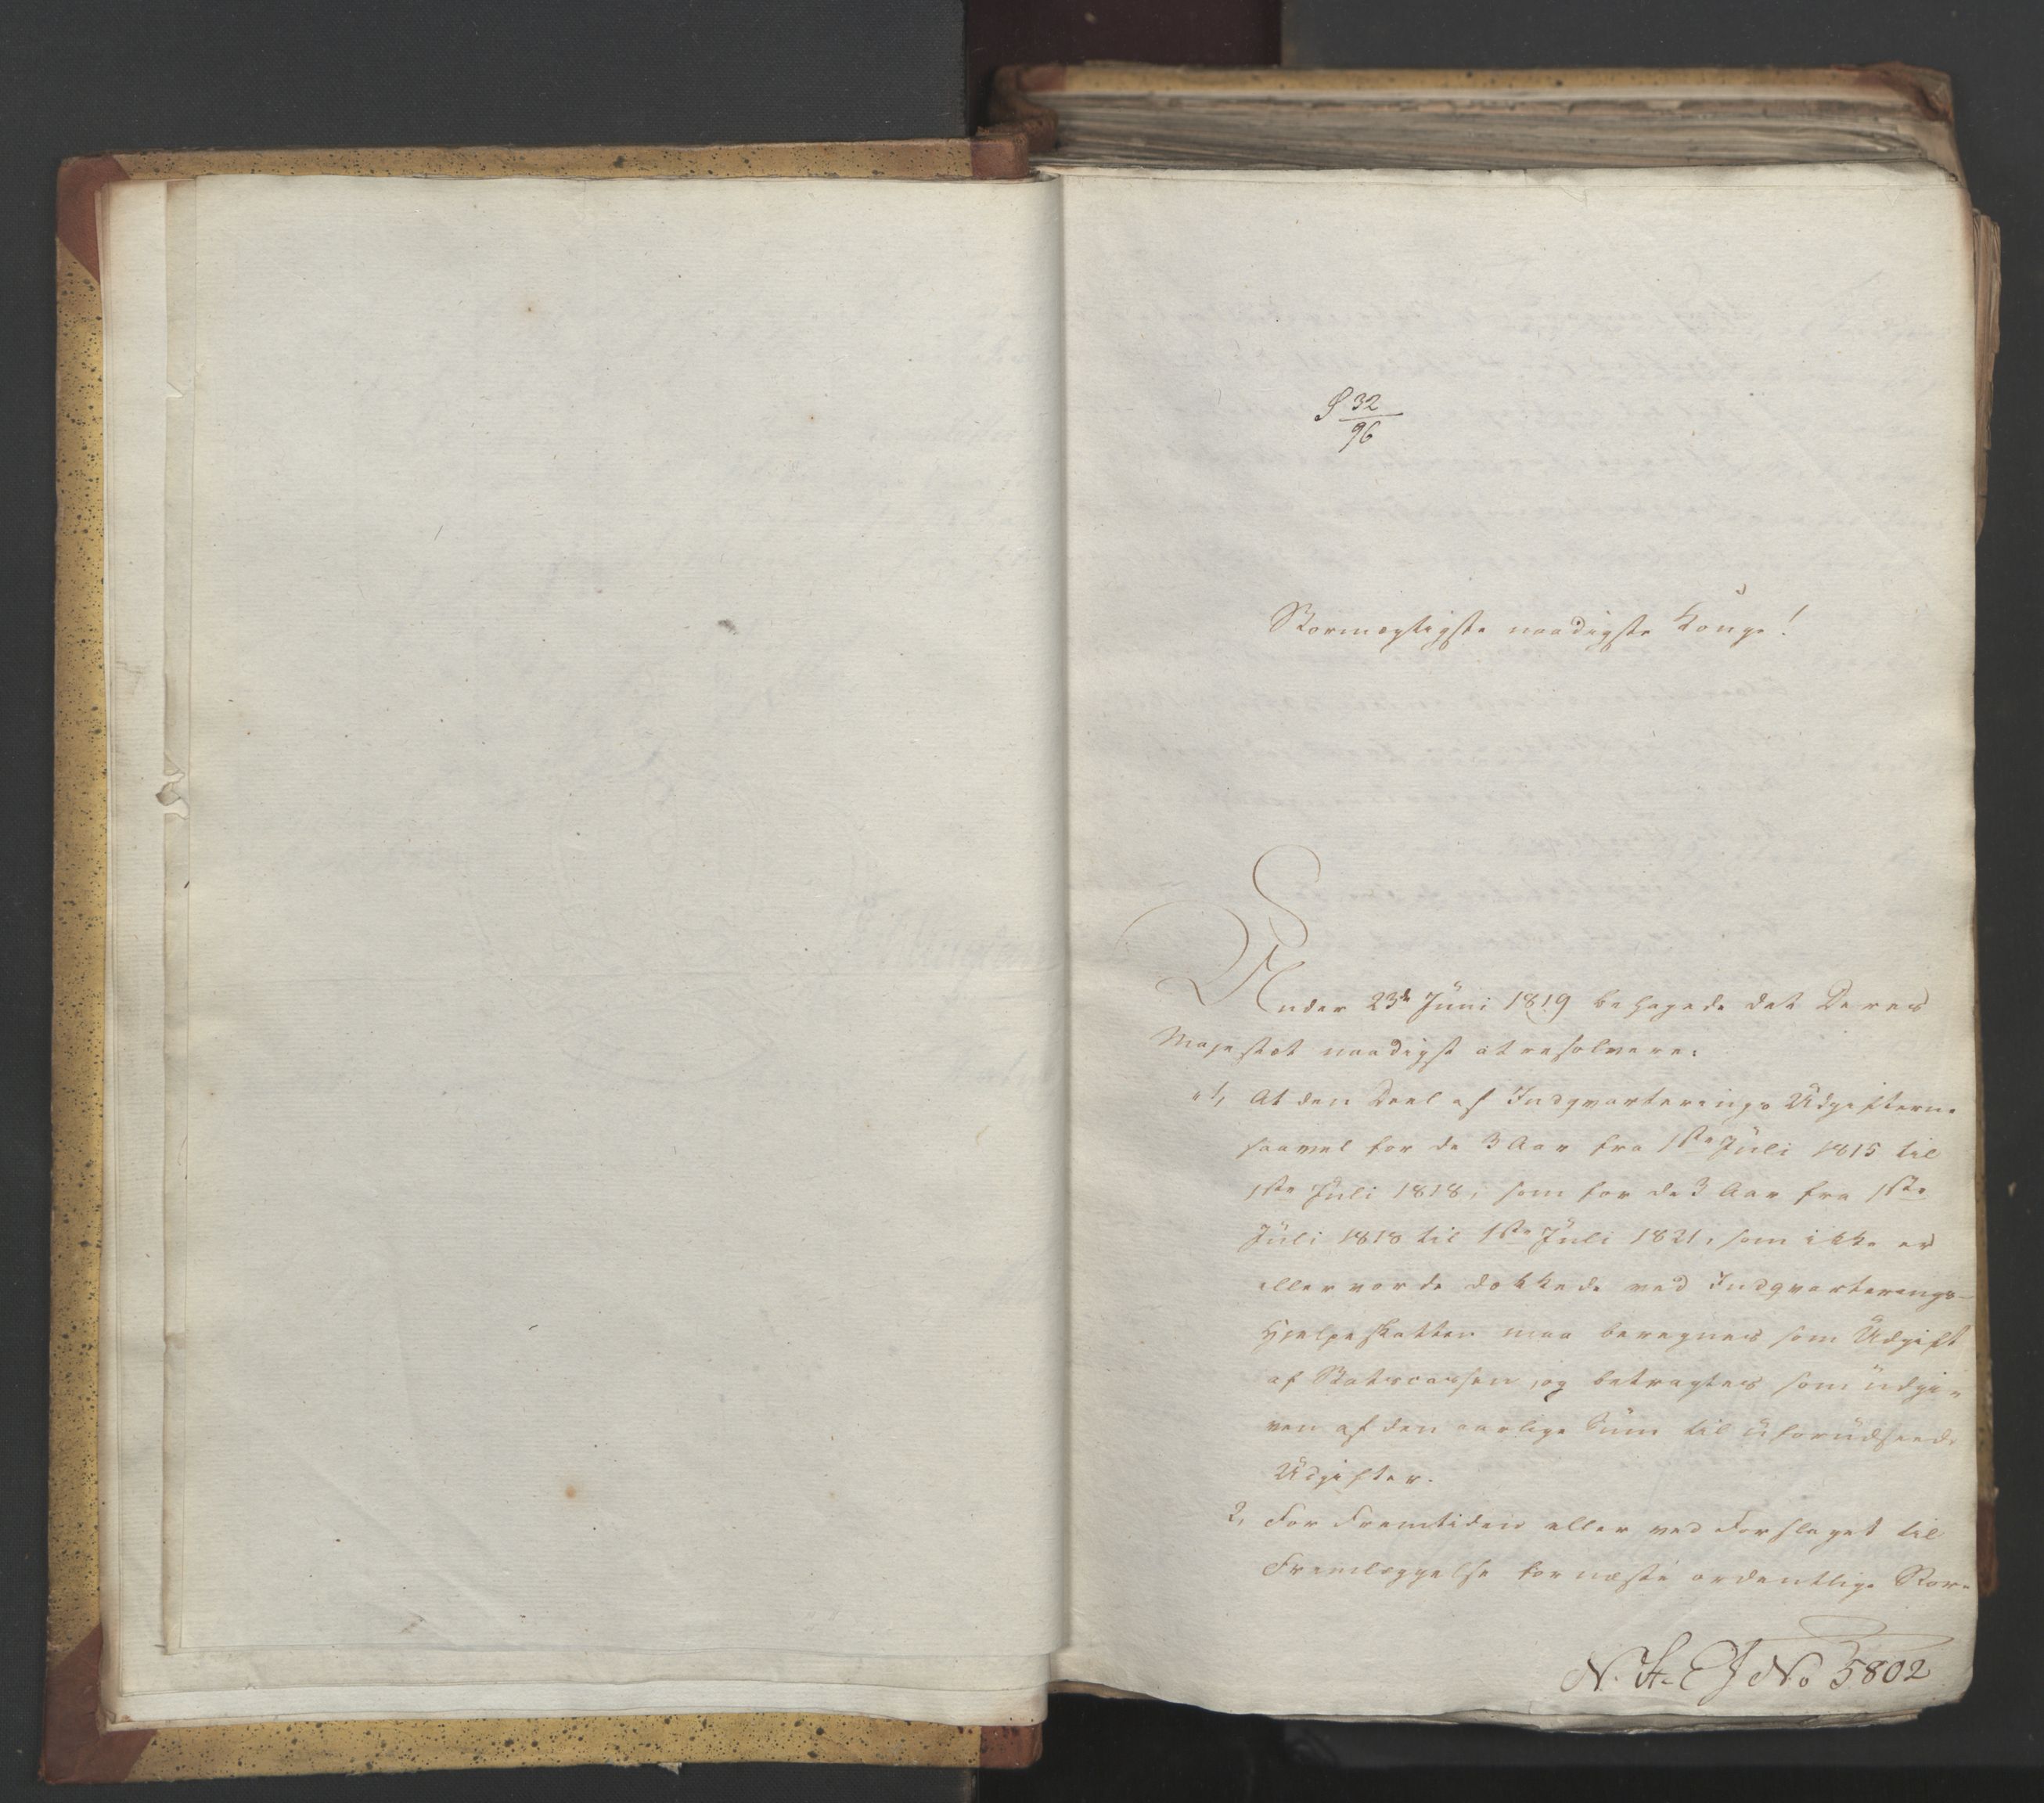 S 32/96
Stormægtigste naadigste Konge!
Under 23de Juni 1819 behagede det Deres
Majestæt naadigst at resolvere:
"1, At den Deel af Indqvarterings Udgifterne
saavel for de 3 Aar fra 1ste Juli 1815 til
1ste Juli 1818, som for de 3 Aar fra 1ste
Juli 1818 til 1ste Juli 1821, som ikke er
eller vorde dækkede ved Indqvarterings-
Hjelpeskatten maa beregnes som Udgift
af Statscassen, og betragtes som udgi-
ven af den aarlige Sum til uforudseede
Udgifter.
2, For Fremtiden eller ved Forslaget til
Fremlæggelse for næste ordentlige Stor-
N. St. E J No 5802